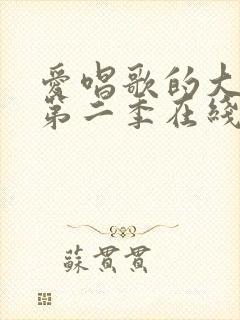 愛唱歌的大
第二季在綫
蘇貫貫